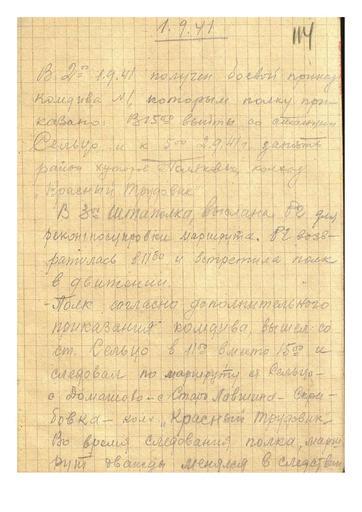 1.9.41
114
В 2⁰⁰ 1.9.41 получен боевой приказ
Комдива №1, которым полку при-
казано: В 15⁰⁰ выйти со станции
Сельцо и к 5⁰⁰ 2.9.41 занять
район хутора колхоз
"Красный Трудовик"
В 3⁰⁰ штаполка выслана РГ для
рекогносцировки маршрута. РГ возв-
ратилась в 11³⁰ и встретила полк
в движении.
-Полк согласно дополнительного
приказания комдива вышел со
ст. Сельцо в 11⁰⁰ вместо 15⁰⁰ и
следовал по маршруту ст Сельцо-
-с Домашово-с Старо Лавшина-
бовка- колх "Красный Трудовик
Во время следования полка, марш
рут дважды менялся в следствии